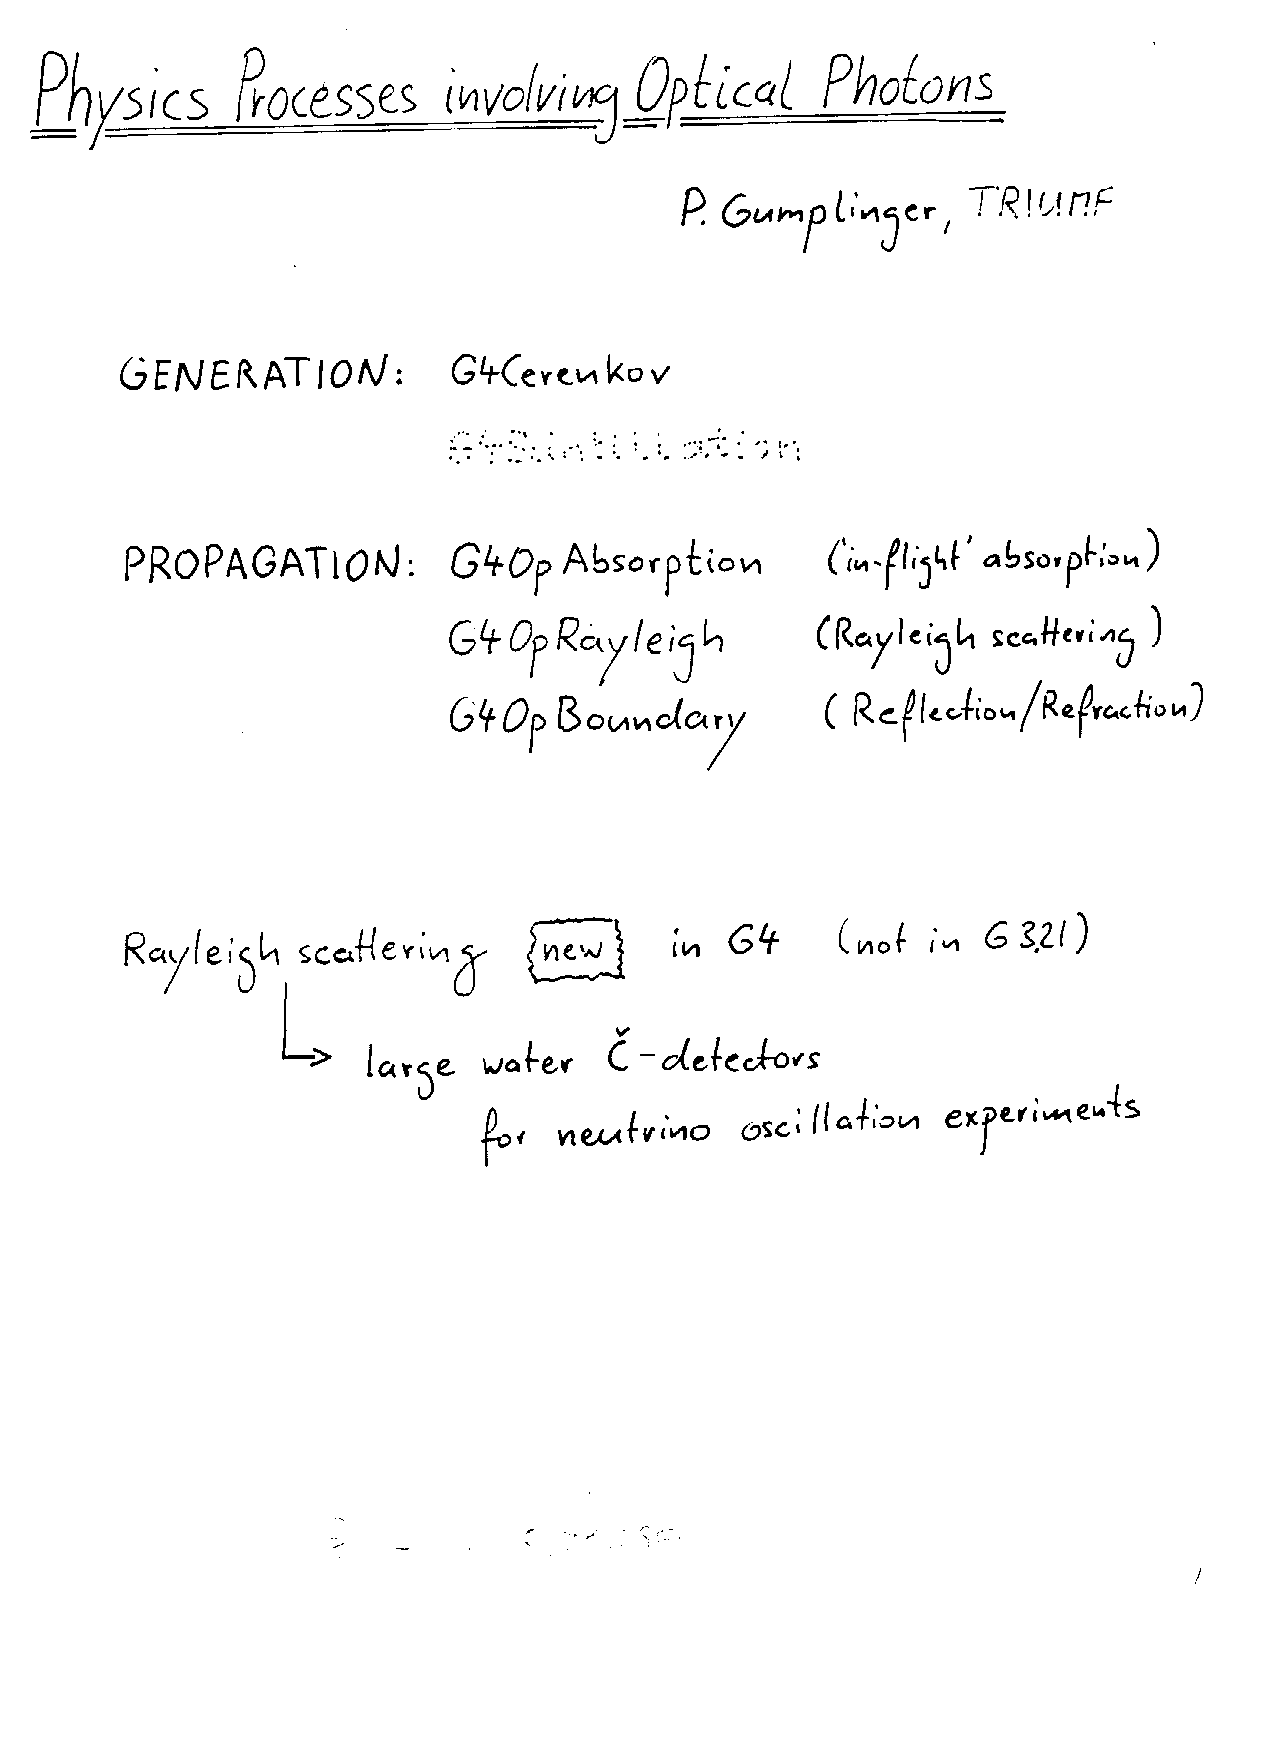 Physics Processes involving Optical Photons
P. Gumplinger, TRIUMF
GENERATION: G4Cerenkov
G4Scintillation
PROPAGATION: G4OpAbsorption ('in-flight' absorption)
G4OpRayleigh (Rayleigh scattering)
G4OpBoundary (Reflection/Refraction)
Rayleigh scattering new in G4 (not in G3.21)
large water Č-detectors
for neutrino oscillation experiments
1